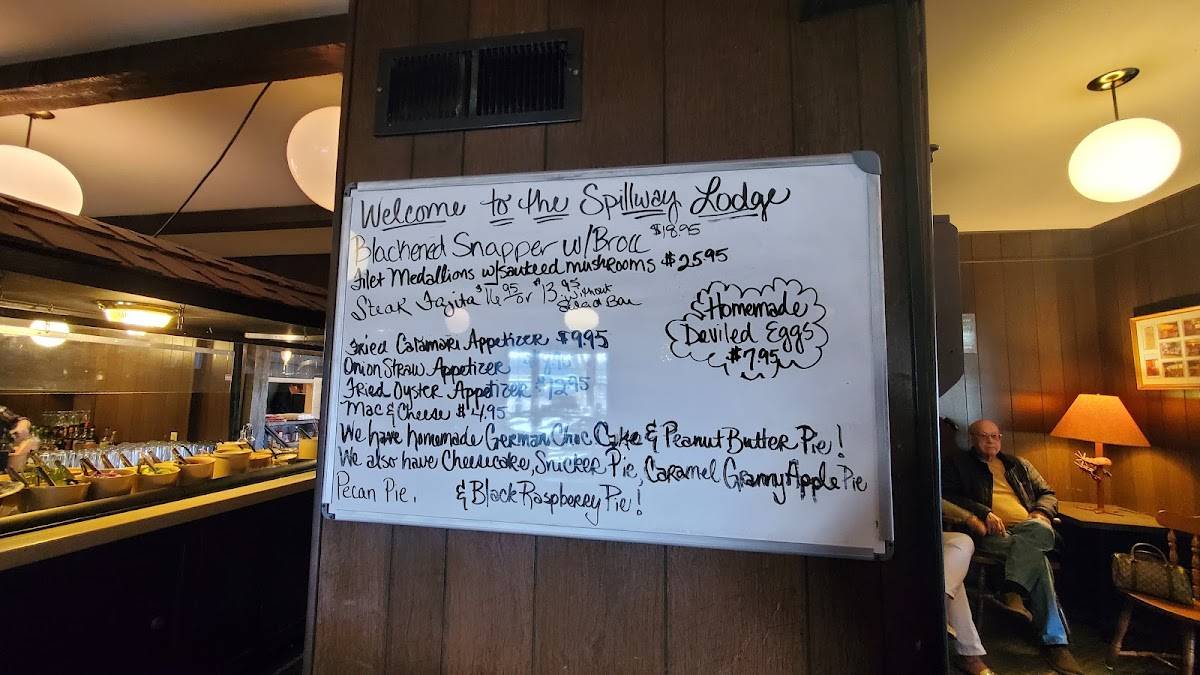 Welcome to the Spillway Lodge
Blackened Snapper w/Brocc $18.95
Filet Medallions w/sauteed mushrooms $25.95
Steak Fajita $16.95 or $13.95 without Salad Bar
Homemade
Deviled Eggs
$7.95
Fried Calamari Appetizer $9.95
Onion Straw Appetizer
Fried Oyster Appetizer $12.95
Mac & Cheese $4.95
We have homemade German Choc Cake & Peanut Butter Pie!
We also have Cheesecake, Snicker Pie, Caramel Granny Apple Pie
Pecan Pie, & Black Raspberry Pie!